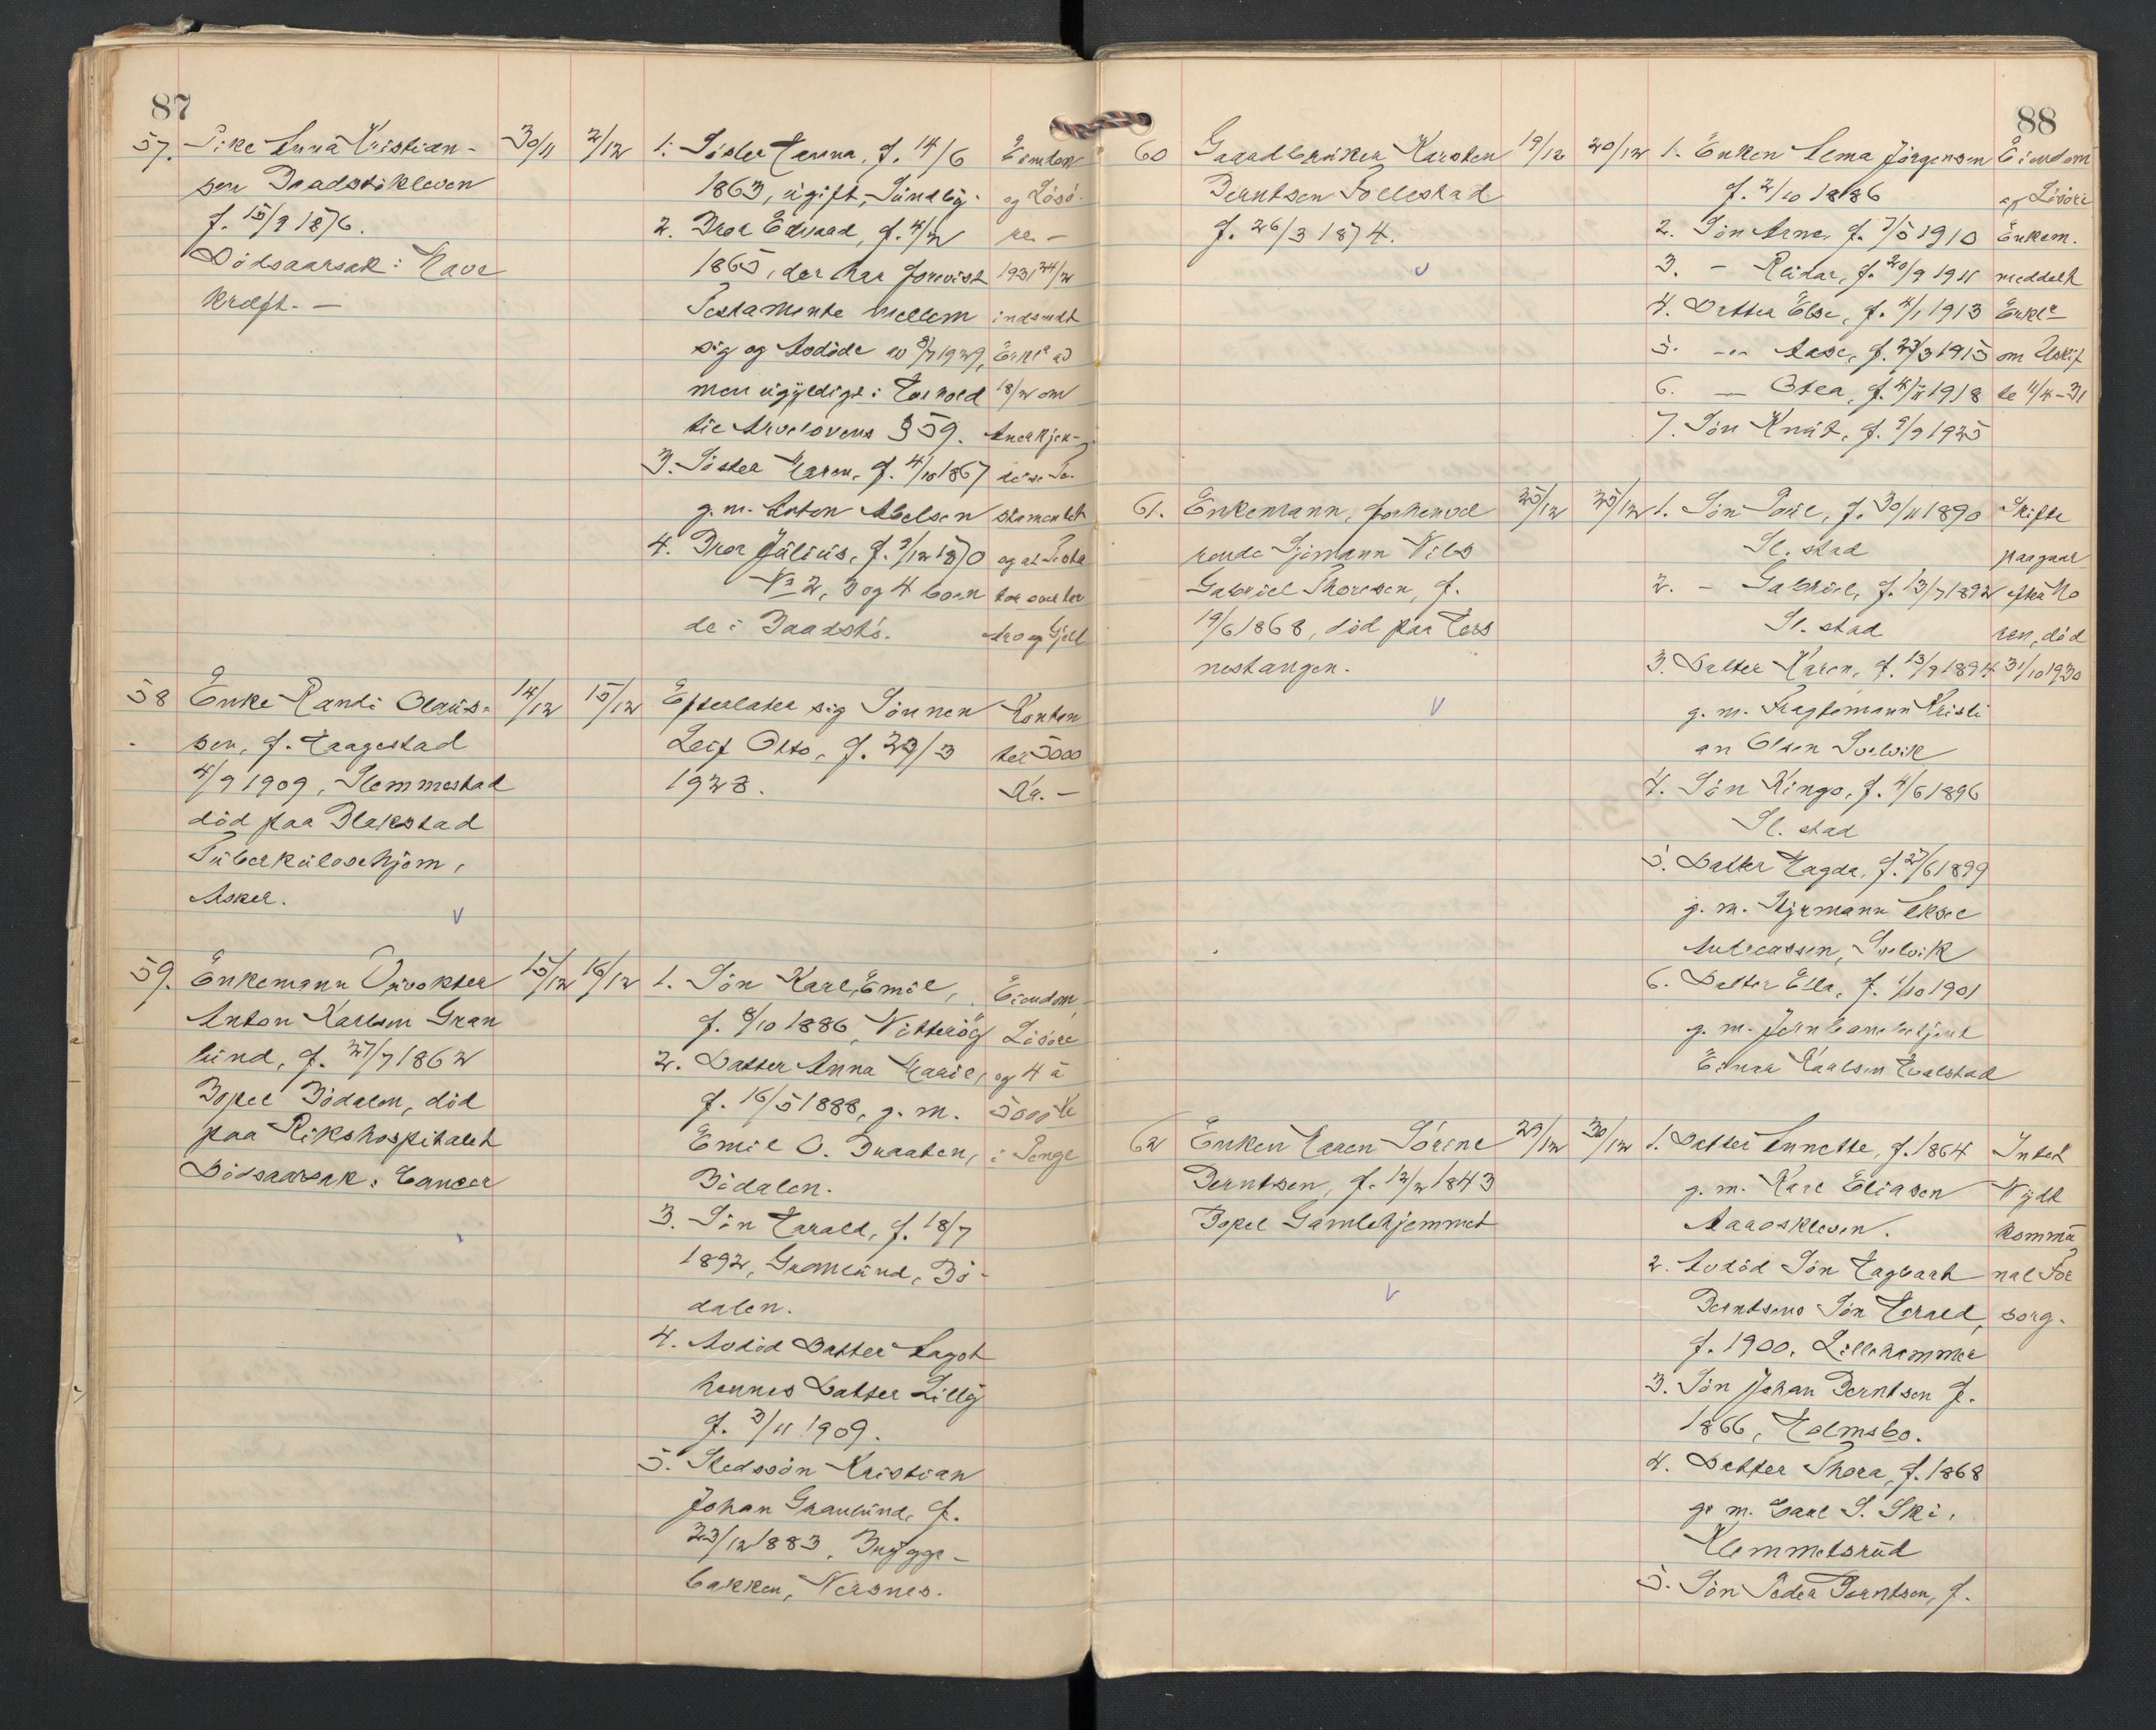 87
57. Pike Anna Kristian-
sen Baadstökleven
f. 15/9 1876.
Dödsaarsak: Mave
kræft. —
30/11
2/12
1. Söster Hanna, f. 14/6
1863, ugift, Sundby.
2. Bror Edvard, f. 4/2
1865, der har forevist
Testamente mellem
sig og Avdöde av 8/7 1929,
men ugyldigt i Henhold
til Arvelovens § 59.
3. Söster Maren, f. 4/10 1867
g. m. Anton Abelsen
4. Bror Julius, f. 9/12 1870
No 2, 3 og 4 boen
de i Baadstö.
Eiendom
og Lösö-
re. —
1931 24/2
indsendt
Erkl. av
18/2 om
Anerkjen-
delse Te-
stamentet
og at Testa
tor overtar
Arv og Gjeld
58 Enke Randi Olaus-
sen, f. Haagestad
4/9 1909, Slemmestad
död paa Blakstad
Tuberkulosehjem,
Asker.
14/12
15/12
Efterlater sig Sönnen
Leif Otto, f. 23/3
1928.
Konten
ter 5000
Kr. —
59. Enkemann Opsvokter
Anton Karlsen Gran
lund, f. 27/7 1862
Bopel Bödalen, död
paa Rikshospitalet
Dödsaarsak: Cancer
15/12
16/12
1. Sön Karl Emil,
f. 8/10 1886, Nötteröy
2. Datter Anna Marie,
f. 16/5 1888, g. m.
Emil O. Braaten,
Bödalen.
3. Sön Harald, f. 18/7
1892, Granlund, Bö-
dalen.
4. Avdöd Datter Aagot
hennes Datter Lilly
f. 3/11 1909.
5. Stedssön Kristian
Johan Granlund, f.
23/12 1883, Brygge-
bakken, Nersnes.
Eiendom,
Lösöre
og 4 à
5000 Kr
i Penge
88
60 Gaardbruker Karsten
Berntsen Töllestad
f. 26/3 1874.
19/12
20/12
1. Enken Alma Jörgensen
f. 2/10 1886
2. Sön Arne, f. 7/5 1910
3. — Reidar, f. 20/9 1911
4. Datter Else, f. 4/1 1913
5. — Aase, f. 23/3 1915
6. — Otea, f. 4/11 1918
7. Sön Knut, f. 9/9 1925
Eiendom
og Lösöre
Enkem.
meddelt
Erkl.
om Uskif
te 11/4-31
61. Enkemann, forhenvæ
rende Sjömann Nils
Gabriel Thoresen, f.
19/6 1868, död paa Ters
nestangen.
25/12
25/12
1. Sön Paul, f. 30/11 1890
Sl. stad
2. — Gabriel, f. 13/7 1892
Sl. stad
3. Datter Karen, f. 13/9 1894
g. m. Fragtemann Kristi
an Olsen Svelvik
4. Sön Kingo, f. 4/6 1896
Sl. stad
5. Datter Magda, f. 27/6 1899
g. m. Styrmann Aksel
Andreassen, Svelvik
6. Datter Ella, f. 1/10 1901
g. m. Jernbanebetjent
Einar Karlsen Hvalstad
Skifte
paagaar
efter Mo
ren, död
31/10 1930
62 Enken Maren Sörine
Berntsen, f. 12/2 1843
Bopel Gamlehjemmet
29/12
30/12
1. Datter Annette, f. 1864
g. m. Karl Eliasen
Aaroskleven.
2. Avdöd Sön Hagbart
Berntsens Sön Harald,
f. 1900, Lillehammer
3. Sön Johan Berntsen f.
1866, Holmsbo.
4. Datter Thora, f. 1868
g. m. Carl S. Ski,
Klemmetsrud
5. Sön Peder Berntsen, f.
Intet
Nydt
kommu
nal For
sorg.